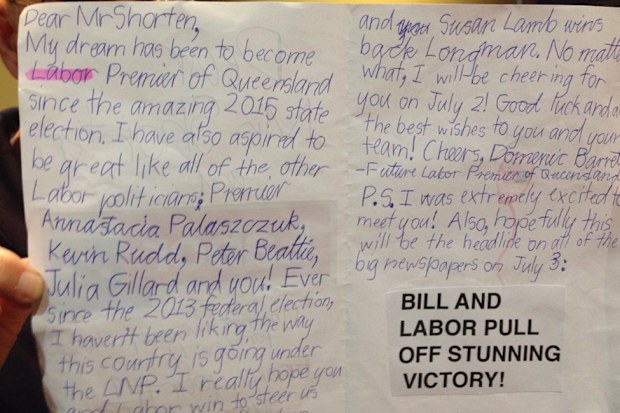 Dear Mr Shorten,
My dream has been to become
Labor Premier of Queensland
since the amazing 2015 state
election. I have also aspired to
be great like all of the other
Labor politicians; Premier
Annastacia Palaszczuk,
Kevin Rudd, Peter Beattie,
Julia Gillard and you! Ever
since the 2013 federal election,
I haven't been liking the way
this country is going under
the LNP. I really hope you
and Labor win to steer us
and Susan Lamb wins
back Longman. No matt
what, I will be cheering for
you on July 2! Good luck and a
the best wishes to you and your
team! Cheers, Domenic Barret
-Future Labor Premier of Queensland
P.S. I was extremely excited t
meet you! Also, hopefully this
will be the headline on all of the
big newspapers on July 3:
BILL AND
LABOR PULL
OFF STUNNING
VICTORY!